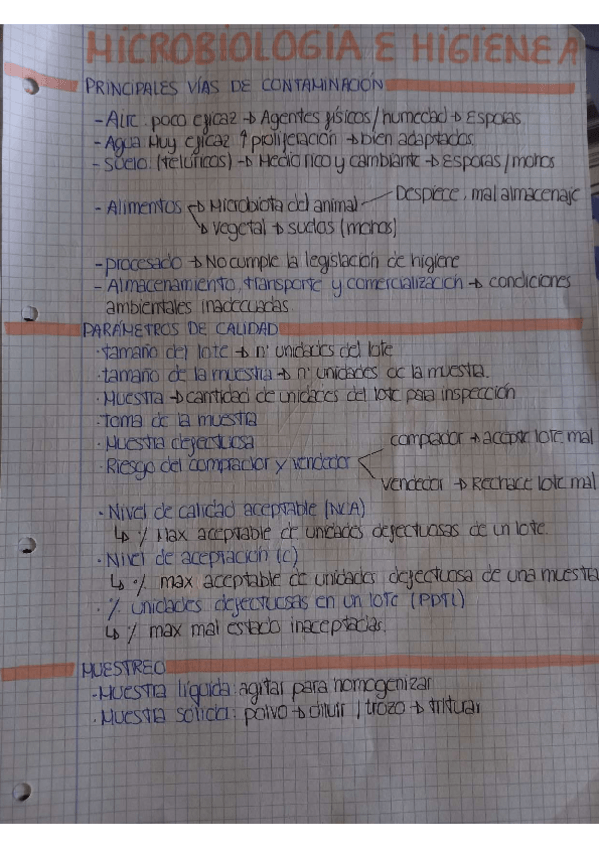 MICROBIOLOGÍA E HIGIENE A
PRINCIPALES VÍAS DE CONTAMINACIÓN
- Aire: poco eficaz → Agentes físicos/humedad → Esporas
- Agua: Muy eficaz ↑ proliferación → bien adaptados
- Suelo: (telúricos) → Medio rico y cambiante → Esporas/mohos
- Alimentos → Microbiota del animal — Despiece, mal almacenaje
↳ vegetal → suelos (mohos)
- procesado → No cumple la legislación de higiene
- Almacenamiento, transporte y comercialización → condiciones
ambientales inadecuadas.
PARÁMETROS DE CALIDAD
· tamaño del lote → nº unidades del lote
· tamaño de la muestra → nº unidades de la muestra.
· Muestra → cantidad de unidades del lote para inspección
· Toma de la muestra
· Muestra defectuosa
· Riesgo del comprador y vendedor < comprador → acepte lote mal
vendedor → Rechace lote mal
· Nivel de calidad aceptable (NCA)
↳ % Max aceptable de unidades defectuosas de un lote.
· Nivel de aceptación (c)
↳ % max aceptable de unidades defectuosa de una muestra
· % unidades defectuosas en un lote (PDTL)
↳ % max mal estado inaceptadas.
MUESTREO
- Muestra líquida: agitar para homogenizar
· Muestra sólida: polvo → diluir / trozo → triturar